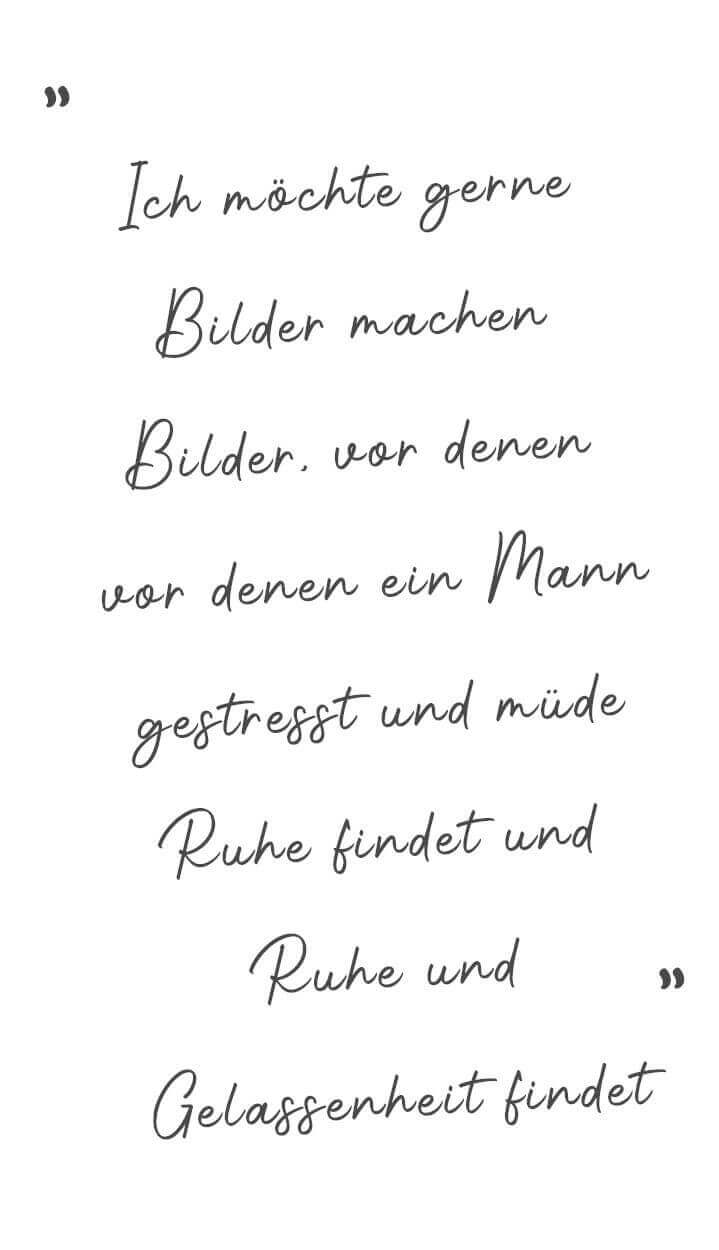 ”
Ich möchte gerne
Bilder machen
Bilder, vor denen
vor denen ein Mann
gestresst und müde
Ruhe findet und
Ruhe und ”
Gelassenheit findet